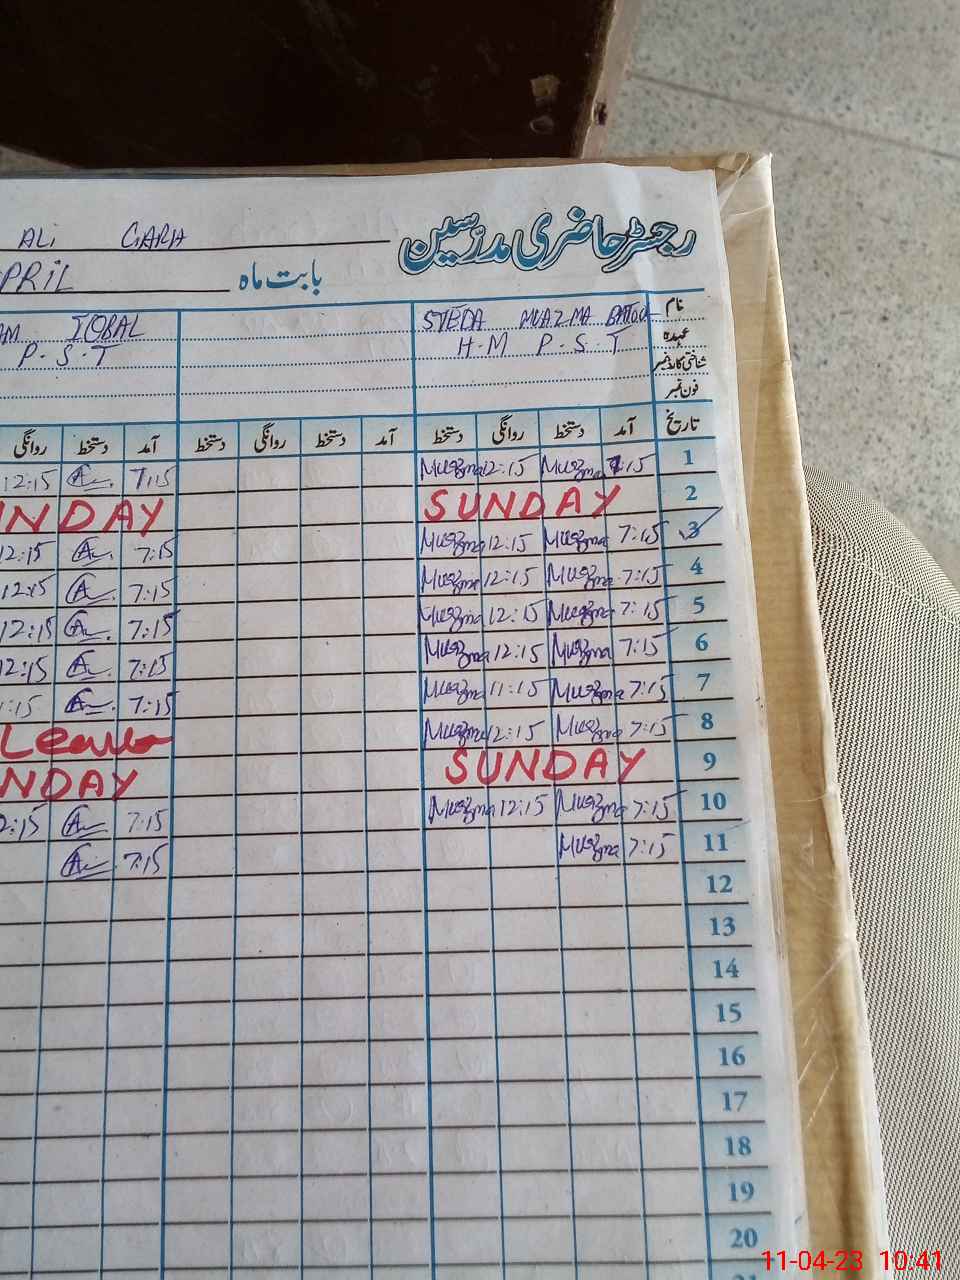 رجسٹر حاضری مدرسین
ALi GARH
بابت ماہ PRiL
نام SYEDA MUAZMA BATOOL IQBAL
عہدہ H-M P.S.T P.S.T
شناختی کارڈ نمبر
فون نمبر
تاریخ آمد دستخط روانگی دستخط آمد دستخط روانگی دستخط آمد دستخط روانگی
1 7:15 Muazma 12:15 Muazma 7:15 12:15
2 SUNDAY NDAY
3 7:15 Muazma 12:15 Muazma 7:15 12:15
4 7:15 Muazma 12:15 Muazma 7:15 12:15
5 7:15 Muazma 12:15 Muazma 7:15 12:15
6 7:15 Muazma 12:15 Muazma 7:15 12:15
7 7:15 Muazma 11:15 Muazma 7:15 1:15
8 7:15 Muazma 12:15 Muazma Leave
9 SUNDAY NDAY
10 7:15 Muazma 12:15 Muazma 7:15 2:15
11 7:15 Muazma 7:15
12
13
14
15
16
17
18
19
20
11-04-23 10:41